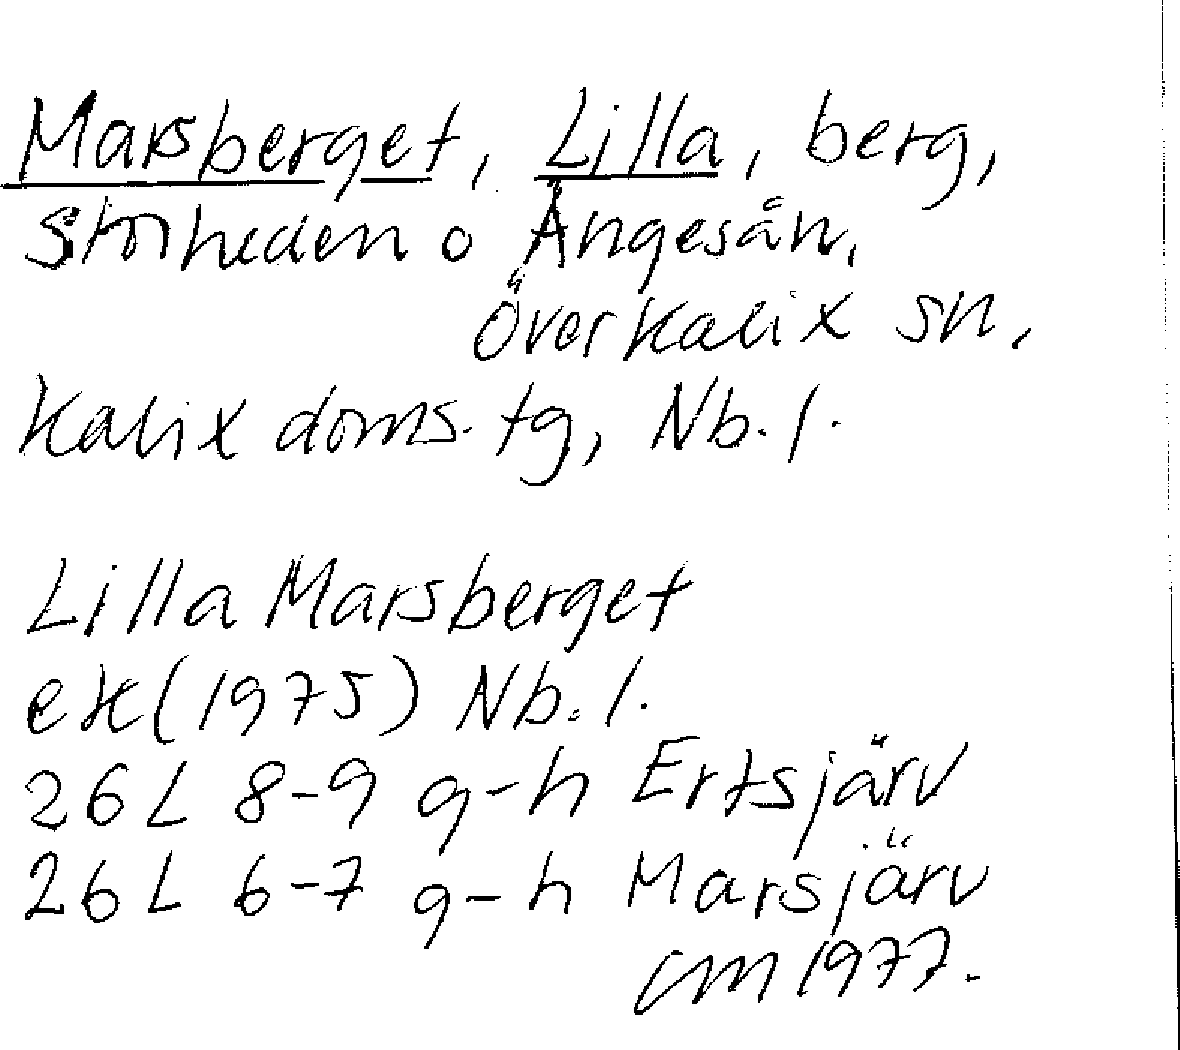 Marsberget, Lilla, berg,
Storheden o Ängesån,
Överkalix sn,
Kalix doms. tg, Nb. l.
Lilla Marsberget
ek (1975) Nb. l.
26 L 8-9 g-h Ertsjärv
26 L 6-7 g-h Marsjärv
CM 1977.